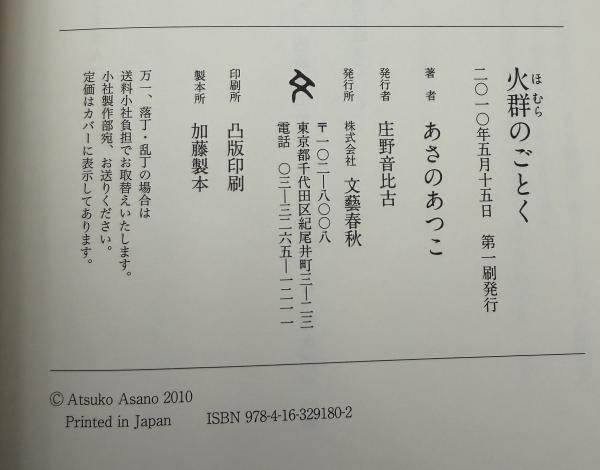 火群のごとく
ほむら
二〇一〇年五月十五日　第一刷発行
著者　あさのあつこ
発行者　庄野音比古
発行所　株式会社　文藝春秋
〒一〇二―八〇〇八
東京都千代田区紀尾井町三―二三
電話　〇三―三二六五―一二一一
印刷所　凸版印刷
製本所　加藤製本
万一、落丁・乱丁の場合は
送料小社負担でお取替えいたします。
小社製作部宛、お送りください。
定価はカバーに表示してあります。
© Atsuko Asano 2010
Printed in Japan　ISBN 978-4-16-329180-2